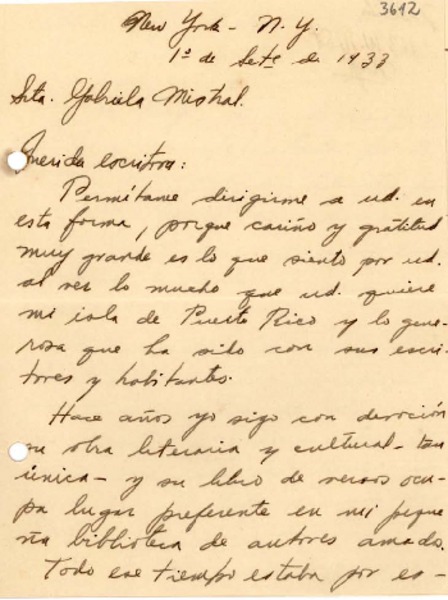 3642
New York - N. Y.
1º de Sete de 1933
Srta. Gabriela Mistral.
Querida escritora:
Permítame dirigirme a ud. en
esta forma, porque cariño y gratitud
muy grande es lo que siento por ud.
al ver lo mucho que ud. quiere
mi isla de Puerto Rico y lo gene-
rosa que ha sido con sus escri-
tores y habitantes.
Hace años yo sigo con devoción
su obra literaria y cultural - tan
única - y su libro de versos ocu-
pa lugar preferente en mi peque
ña biblioteca de autores amados.
Todo ese tiempo estaba por es-